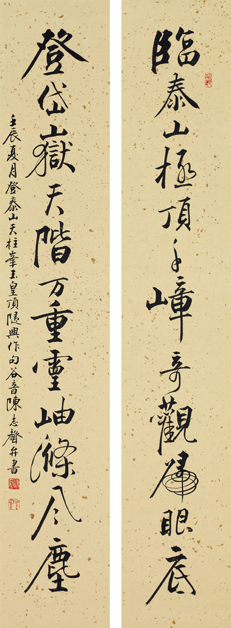 臨泰山極頂千嶂奇觀眼底
登岱嶽天階万重靈岫滌凡塵
壬辰夏月登泰山天柱峯玉皇頂隨興作句谷音陳志聲并書